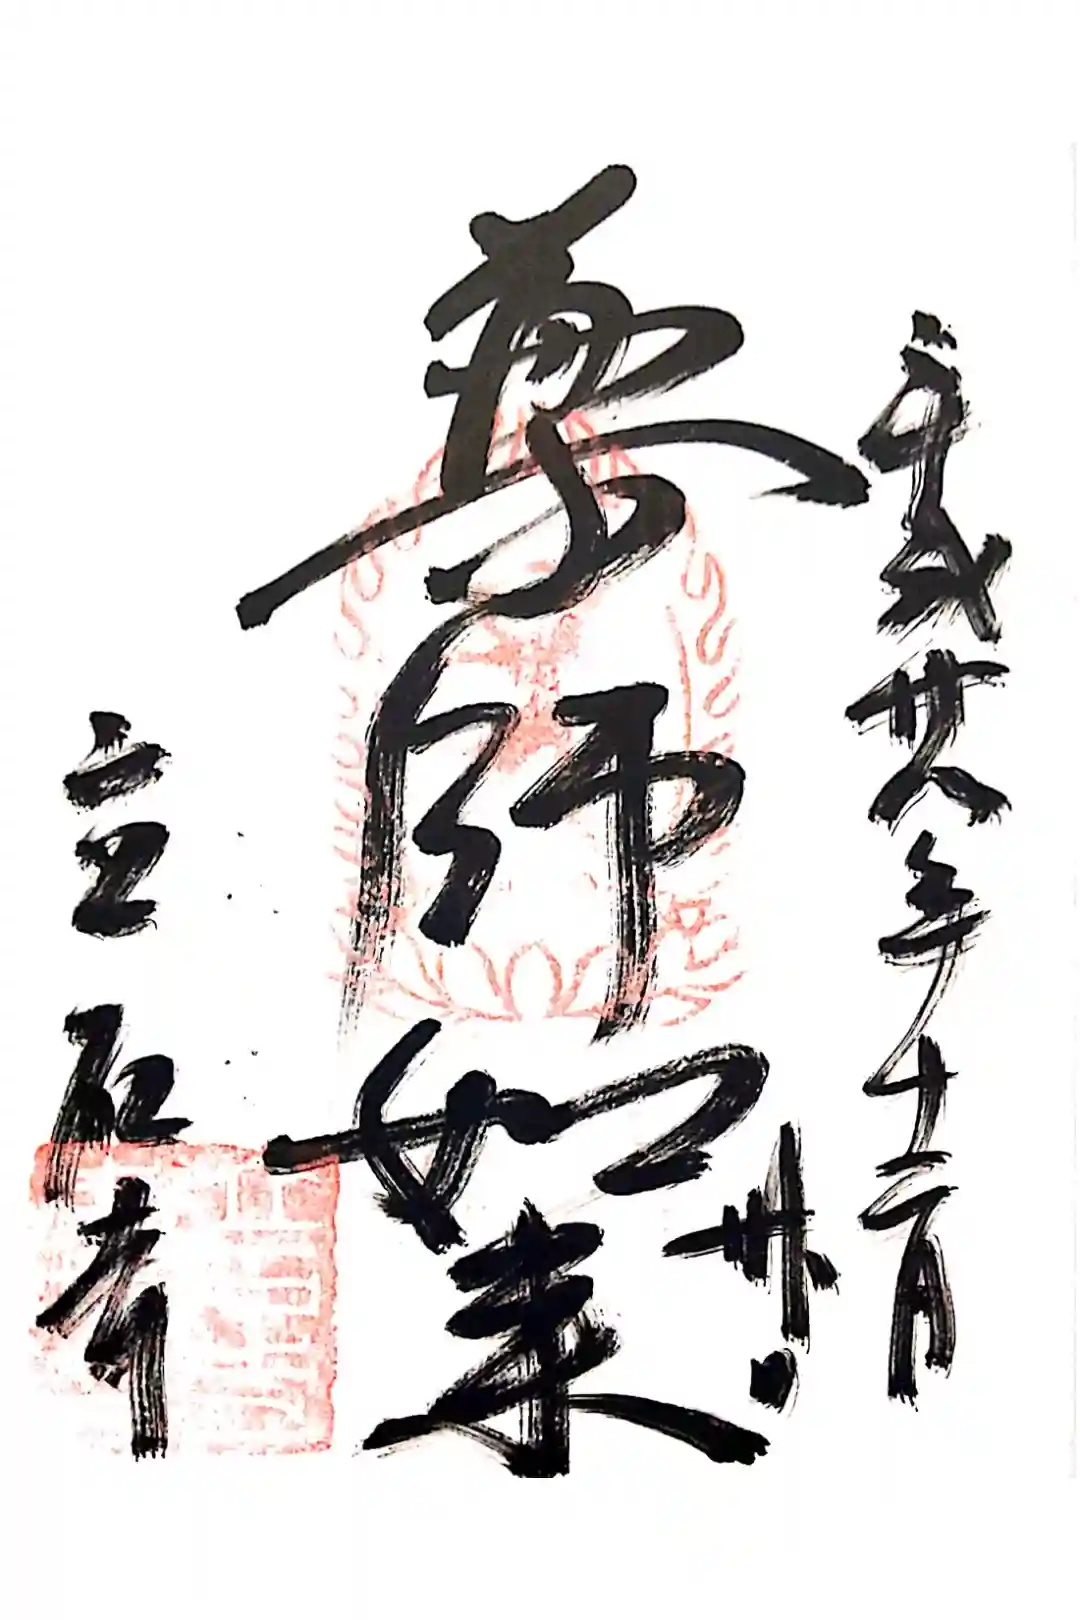 平成廿八年十二月
卅日
薬師如来
立石寺